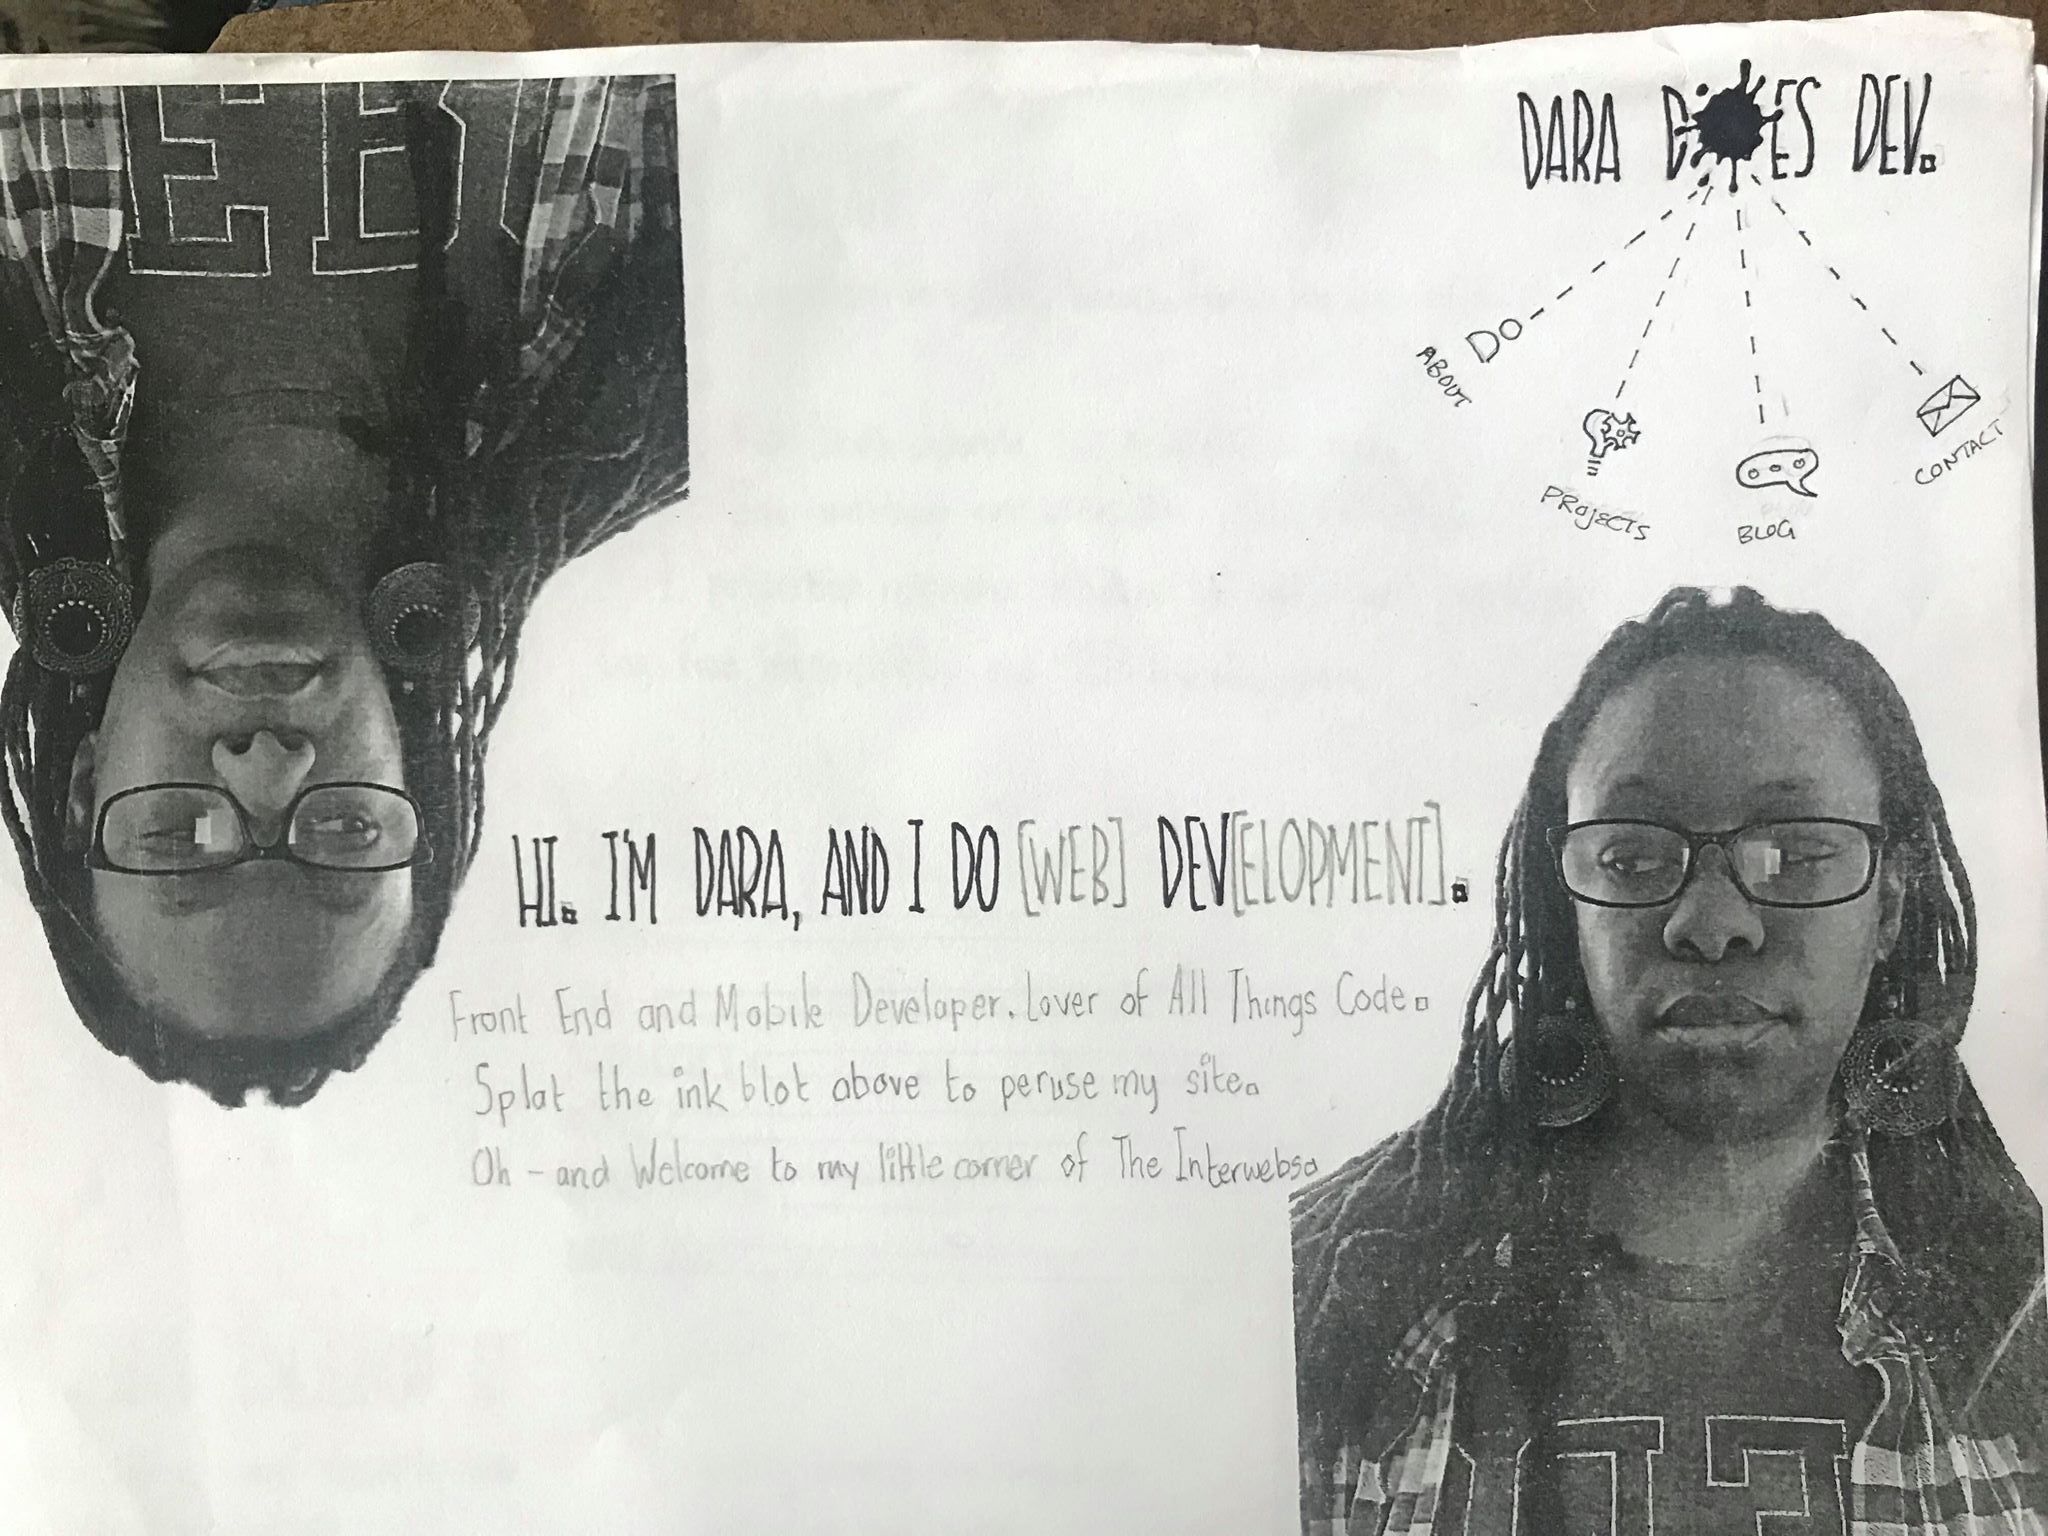 DARA DOES DEV.
ABOUT
DO
PROJECTS
BLOG
CONTACT
HI. I'M DARA, AND I DO [WEB] DEV[ELOPMENT].
Front End and Mobile Developer. Lover of All Things Code.
Splat the ink blot above to peruse my site.
Oh - and Welcome to my little corner of The Interwebs.